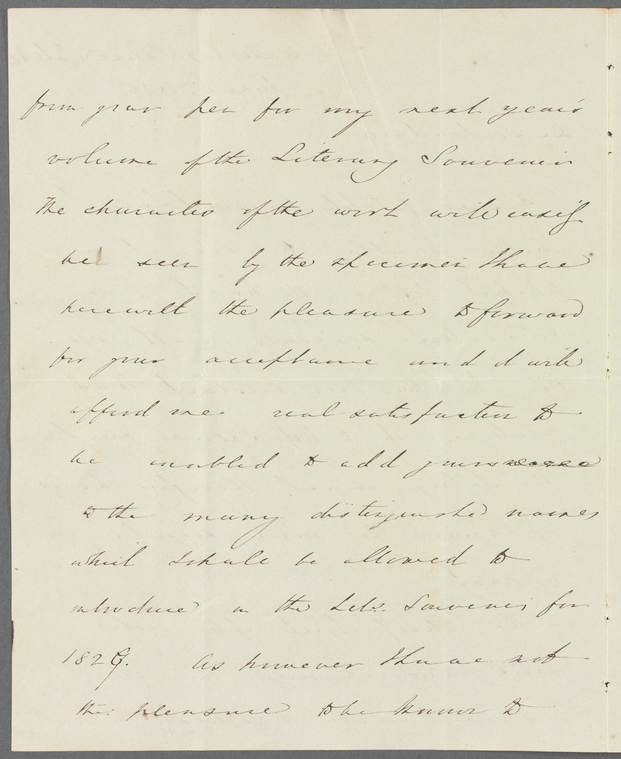 from your pen for my next year's
volume of the Literary Souvenir
The character of the work will easily
be seen by the specimen I have
herewith the pleasure to forward
for your acceptance and it will
afford me real satisfaction to
be enabled to add yours
to the many distinguished names
which I shall be allowed to
introduce in the Lity. Souvenir for
1829. As however I have not
the pleasure to be known to